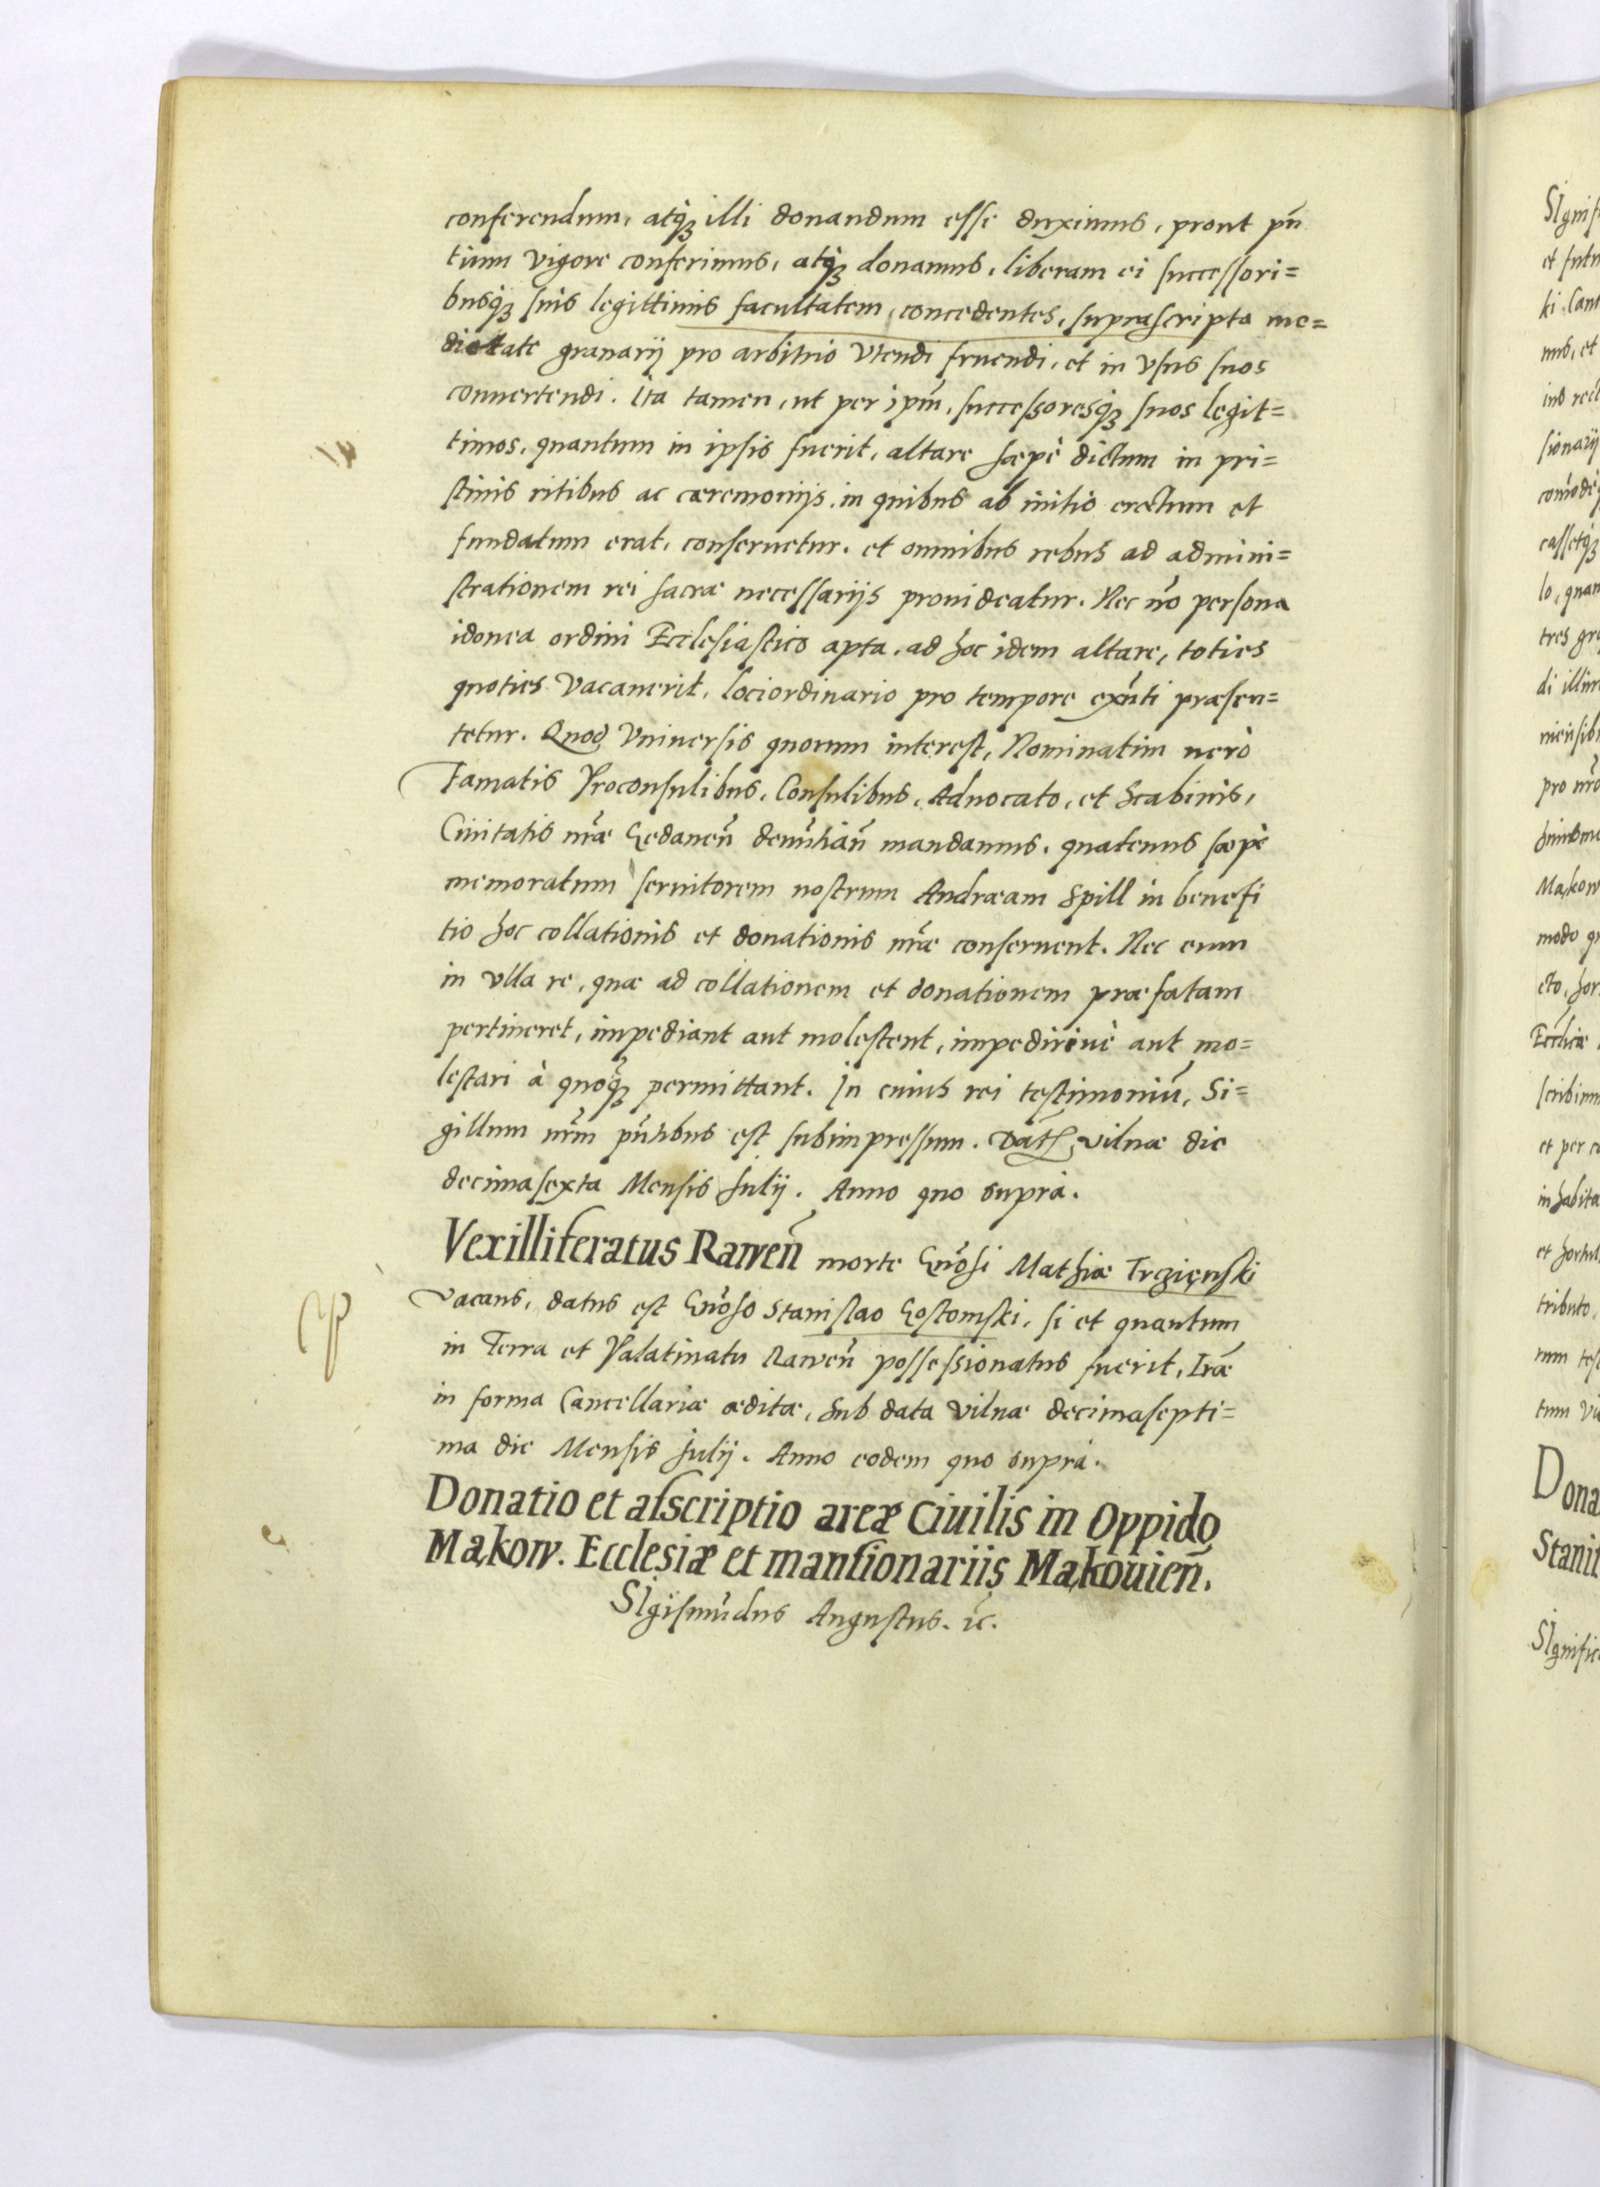 conferendum, atq́ꝫ illi donandum esse duximus, prout pñ
tium vigore conferimus, atq́ꝫ donamus, liberam ei successori=
busq́ꝫ suis legittimis facultatem, concedentes, suprascripta me=
dietate granarij pro arbitrio vtendi fruendi, et in vsus suos
conuertendi. Ita tamen, ut per ipm̃, successoresq́ꝫ suos legit=
timos, quantum in ipsis fuerit, altare sæpè dictum in pri=
stinis ritibus ac cæremonijs, in quibus ab initio erectum et
fundatum erat, conseruetur, et omnibus rebus ad admini=
strationem rei sacræ necessarijs prouideatur. Nec nõ persona
idonea ordini Ecclesiastico apta, ad hoc idem altare, toties
quoties vacauerit, lociordinario pro tempore exñti præsen=
tetur. Quod vniuersis quorum interest, Nominatim uerò
Famatis Proconsulibus, Consulibus, Aduocato, et Scabinis,
Ciuitatis nr̃æ Gedaneñ mandamus, quatenus sæpè
memoratum seruitorem nostrum Andræam Spill in benefi
tio hoc collationis et donationis nr̃æ conseruent. Nec eum
in vlla re, quæ ad collationem et donationem præfatam
pertineret, impediant aut molestent, impediriuè aut mo=
lestari à quoq̃ꝫ permittant. In cuius rei testimoniũ, Si=
gillum nr̃m pñtibus est subimpressum. Datĩ vilnæ die
decimasexta Mensis Julij. Anno quo supra.
Vexilliferatus Raweñ morte Gñosi Mathiæ Trzienski
vacans, datus est Gñoso Stanislao Gostomski, si et quantum
in Terra et Palatinatu Raweñ possessionatus fuerit, Lr̃æ
in forma Cancellariæ æditæ, sub data vilnæ decimasepti=
ma die Mensis Julij. Anno eodem quo supra.
Donatio et asscriptio areæ Ciuilis in Oppido
Makow. Ecclesiæ et mansionariis Makouieñ.
SIgismũdus Augustus. ic̃.